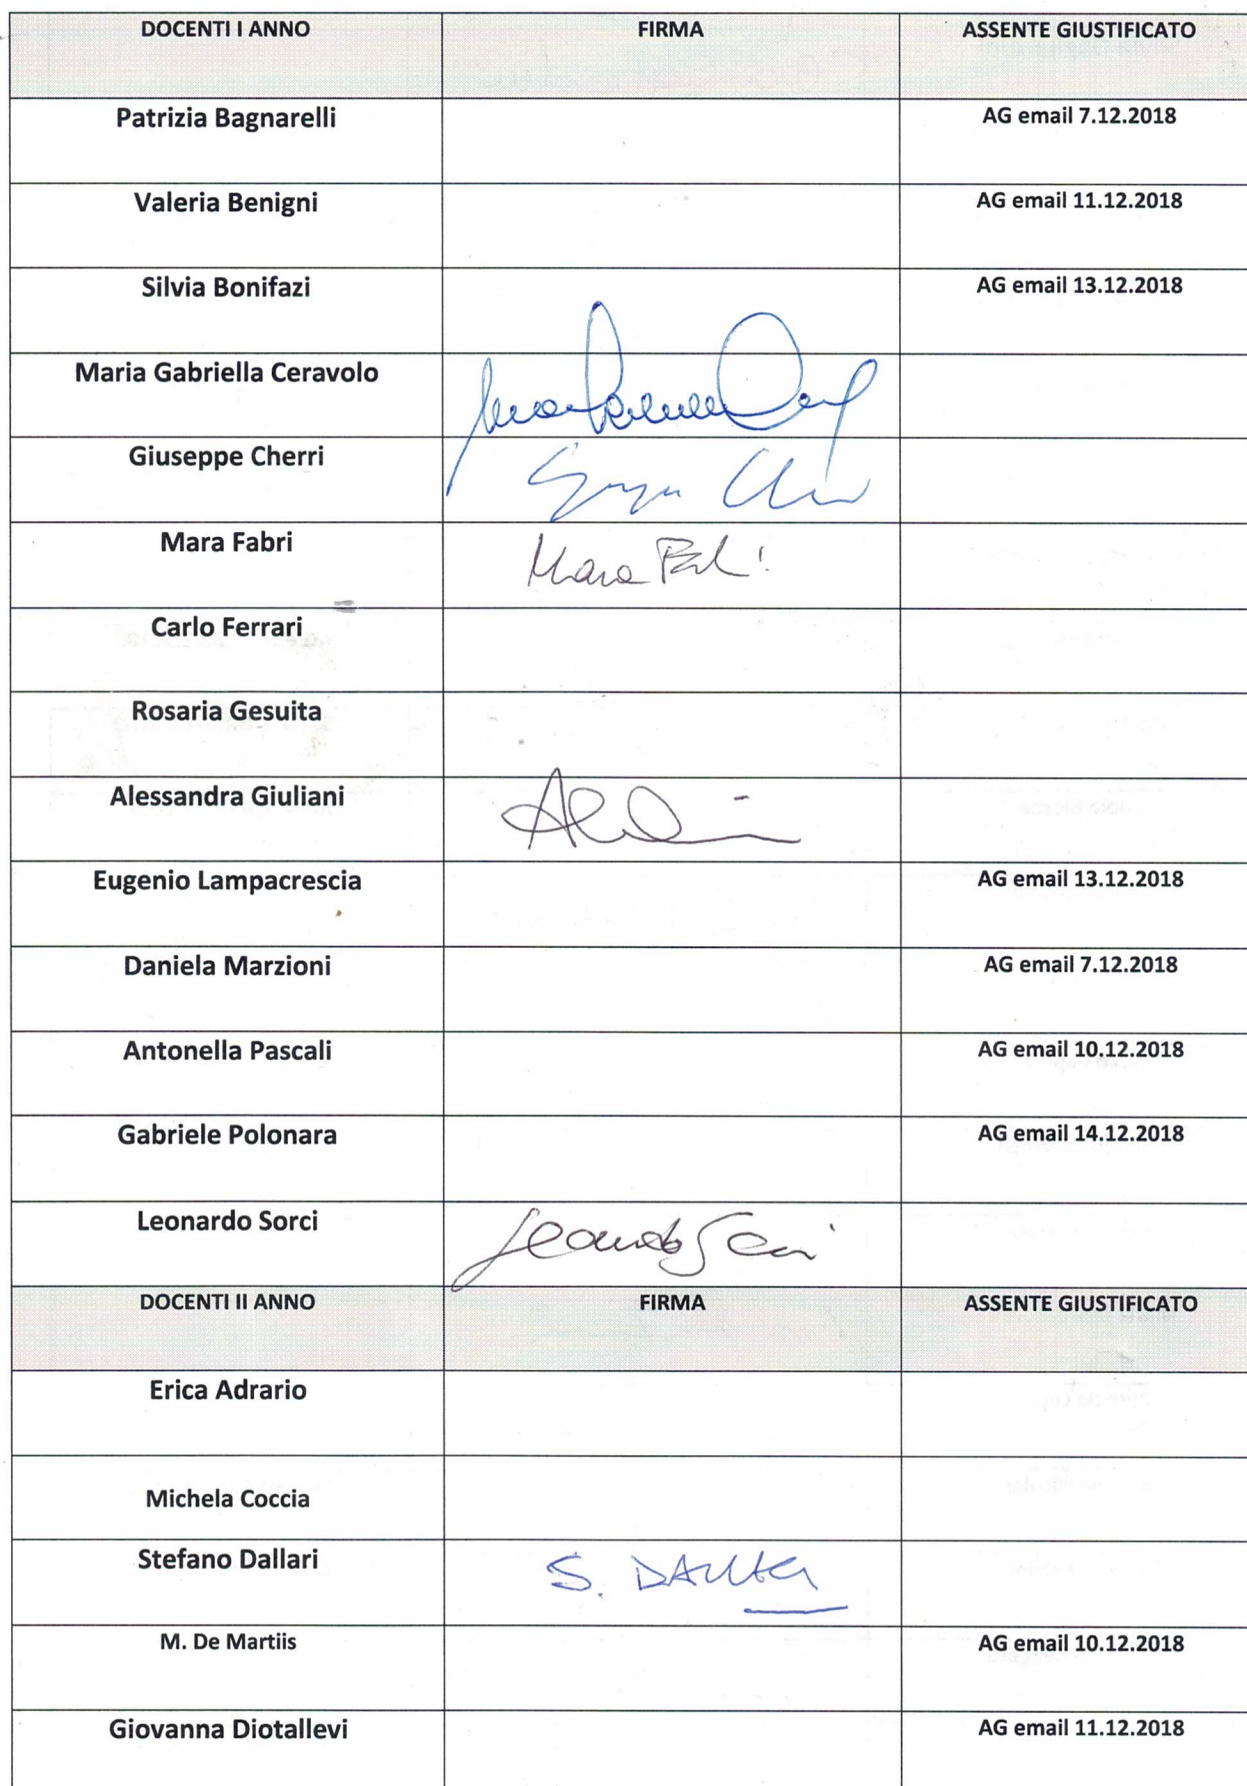 DOCENTI I ANNO FIRMA ASSENTE GIUSTIFICATO
Patrizia Bagnarelli AG email 7.12.2018
Valeria Benigni AG email 11.12.2018
Silvia Bonifazi AG email 13.12.2018
Maria Gabriella Ceravolo
Giuseppe Cherri
Mara Fabri Mara Fabri
Carlo Ferrari
Rosaria Gesuita
Alessandra Giuliani
Eugenio Lampacrescia AG email 13.12.2018
Daniela Marzioni AG email 7.12.2018
Antonella Pascali AG email 10.12.2018
Gabriele Polonara AG email 14.12.2018
Leonardo Sorci Leonardo Sorci
DOCENTI II ANNO FIRMA ASSENTE GIUSTIFICATO
Erica Adrario
Michela Coccia
Stefano Dallari S. DALLARI
M. De Martiis AG email 10.12.2018
Giovanna Diotallevi AG email 11.12.2018